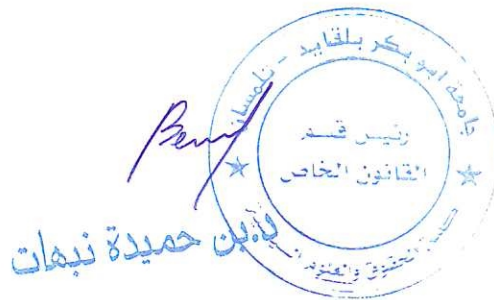 جامعة أبو بكر بلقايد - تلمسان
رئيس قسم
القانون الخاص
الحقوق والعلوم
د.بن حميدة نبهات